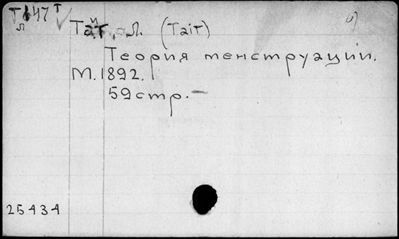 Тайт, Л. (Tait)
Теория менструации.
М. 1892.
59 стр. —
25434